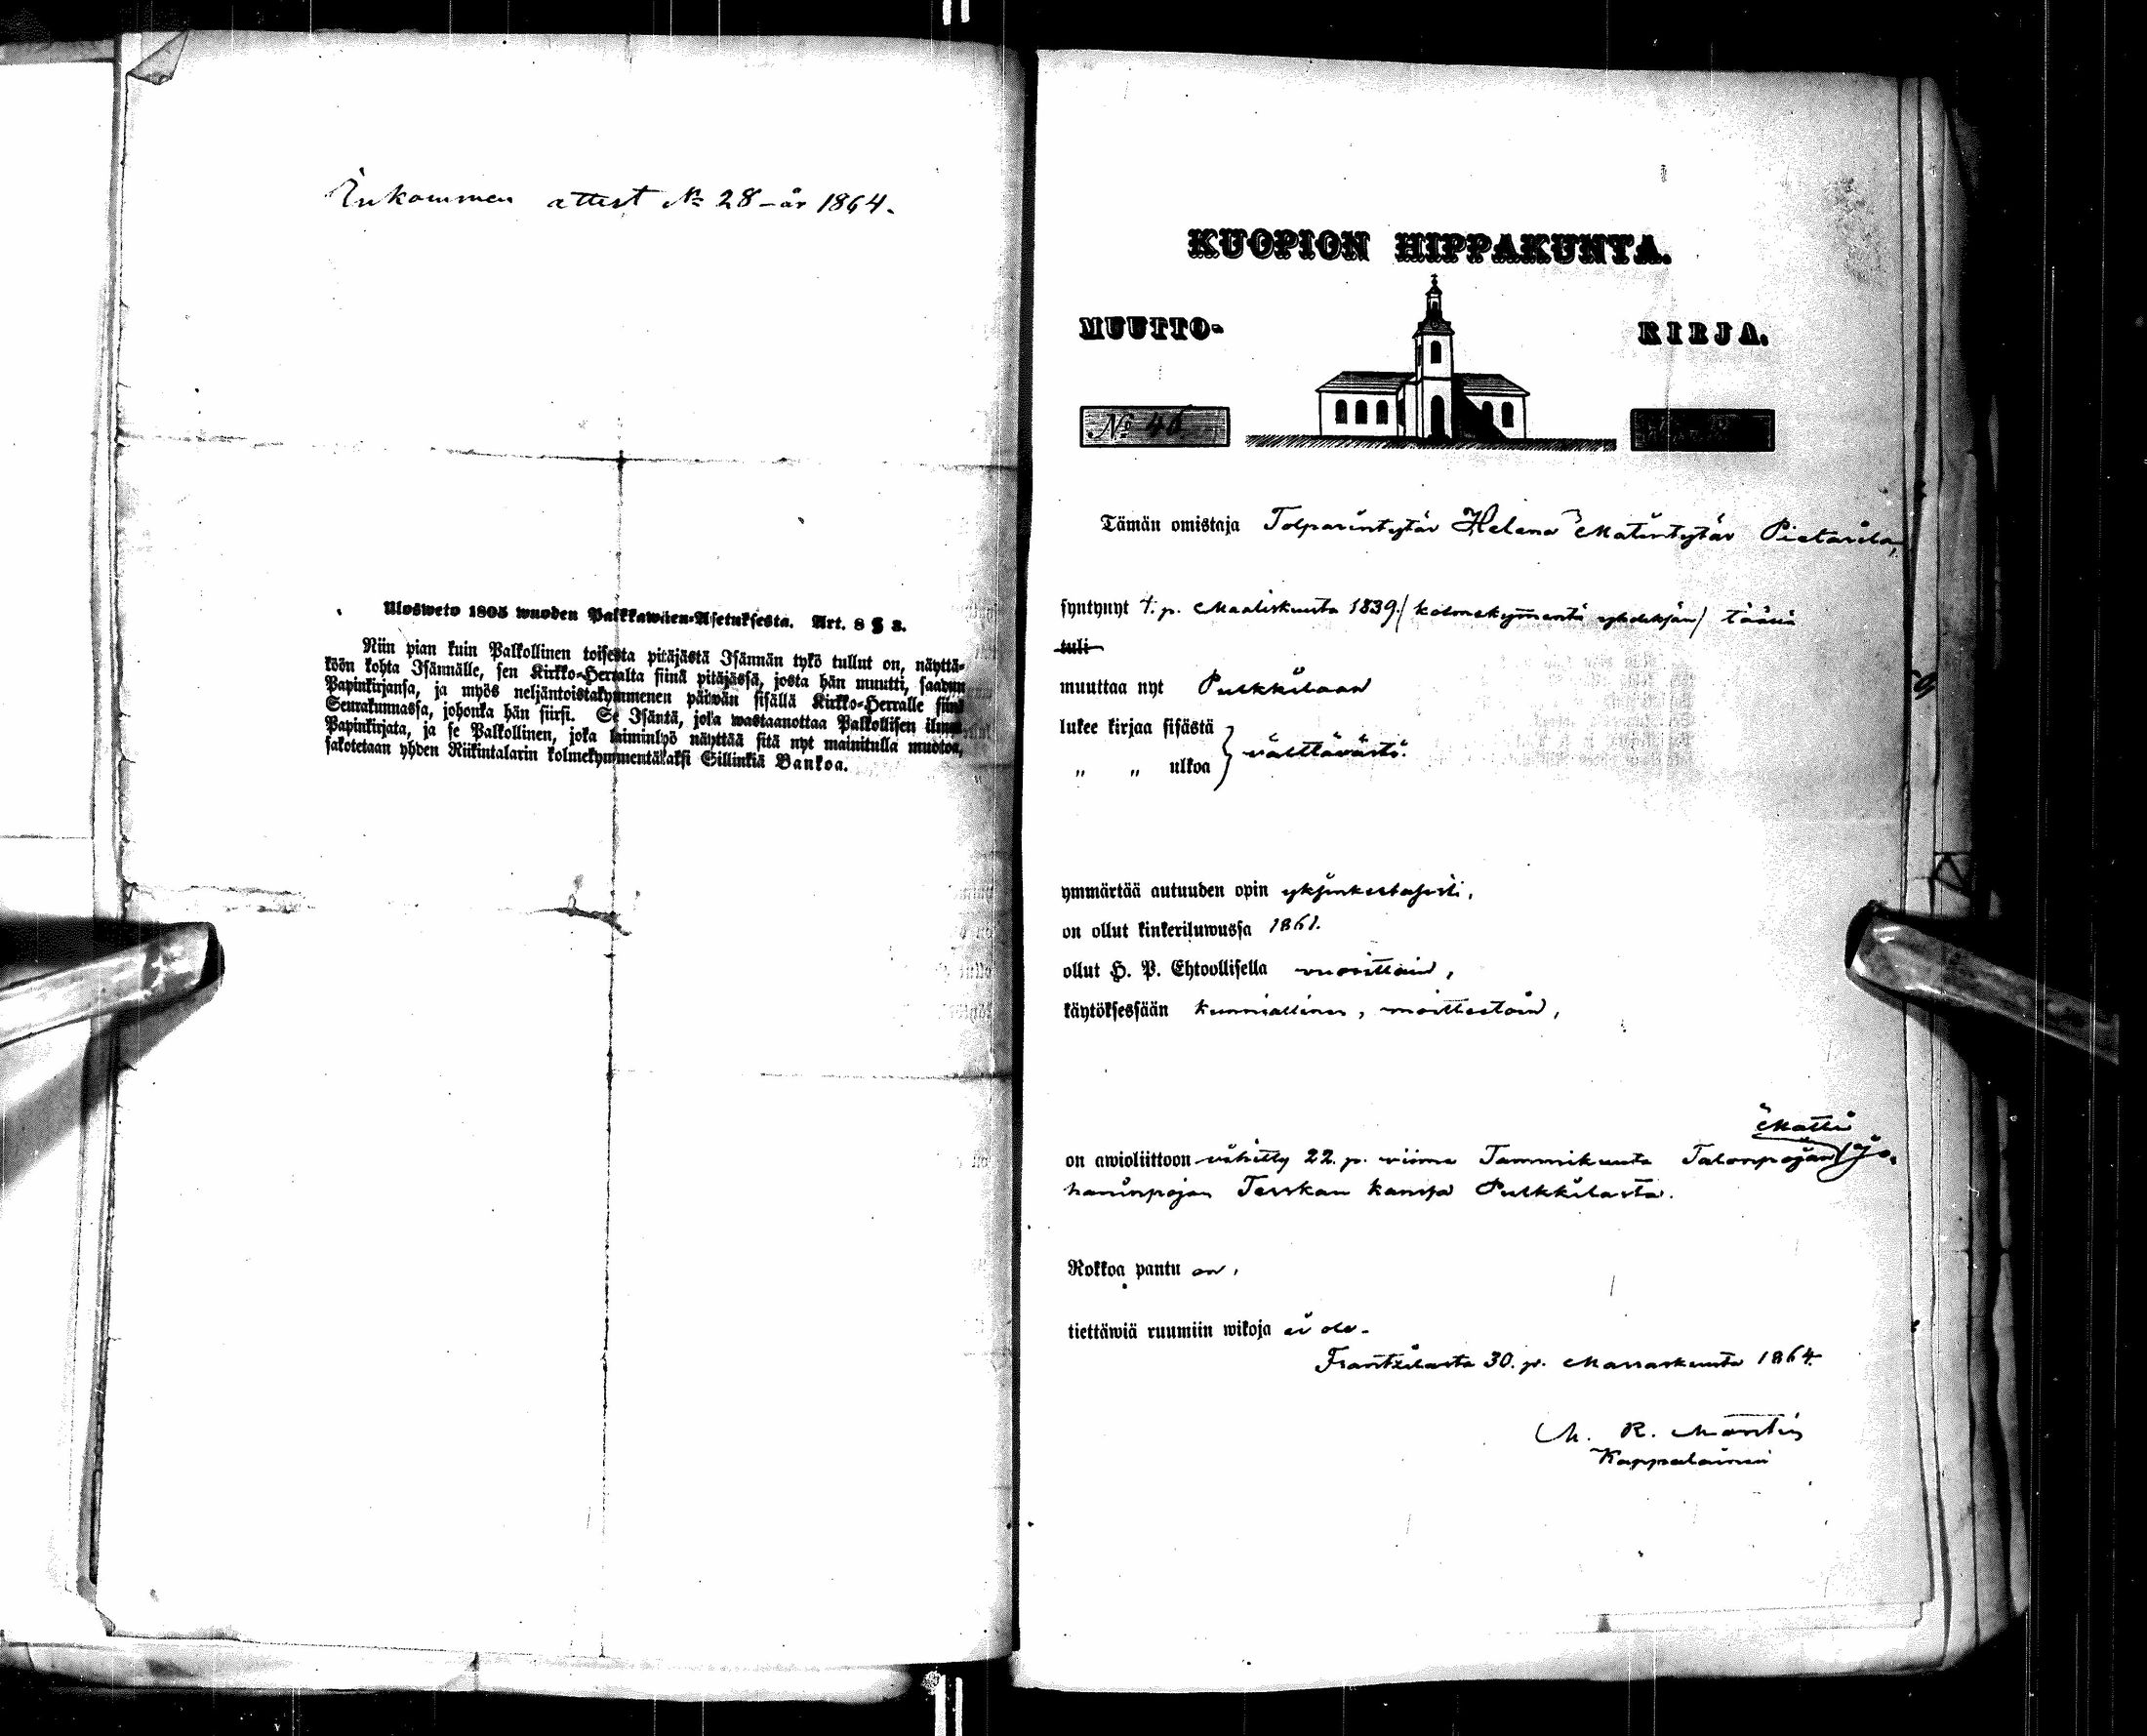 Inkommen attest No 28 - år 1864.
Ulosweto 1805 wuoden Palkkawäen-Asetuksesta. Art. 8 § 3.
Niin pian kuin Palkollinen toisesta pitäjästä Isännän tykö tullut on, näyttä-
köön kohta Isännälle, sen Kirkko-Herralta siinä pitäjässä, josta hän muutti, saadun
Papinkirjansa, ja myös neljäntoistakymmenen päiwän sisällä Kirkko-Herralle siinä
Seurakunnassa, johonka hän siirsi. Se Isäntä, joka wastaanottaa Palkollisen ilman
Papinkirjata, ja se Palkollinen, joka laiminlyö näyttää sitä nyt mainitulla muotoa,
sakotetaan yhden Riikintalarin kolmekymmentäkaksi Sillinkiä Bankoa.
KUOPION HIPPAKUNTA.
MUUTTO- KIRJA.
No 46
Tämän omistaja Tolparintytär Helena Matintytär Pietarila,
syntynyt 4. p. Maaliskuuta 1839. (kolmekymmentä yhdeksän) täässä
tuli
muuttaa nyt Pulkkilaan
lukee kirjaa sisästä
" " ulkoa } välttävästi.
ymmärtää autuuden opin yksinkertaisesti,
on ollut kinkeriluwussa 1861.
ollut H. P. Ehtoollisella vuosittain,
käytöksessään kunniallinen, moitteetoin,
Matti
on awioliittoon vihitty 22. p. viime Tammikuuta Talonpojan Jo-
haninpojan Terskan kanssa Pulkkilasta.
Rokkoa pantu on,
tiettäwiä ruumiin wikoja ei ole.
Frantzilasta 30. p. Marraskuuta 1864.
M. R.
Kappalainen